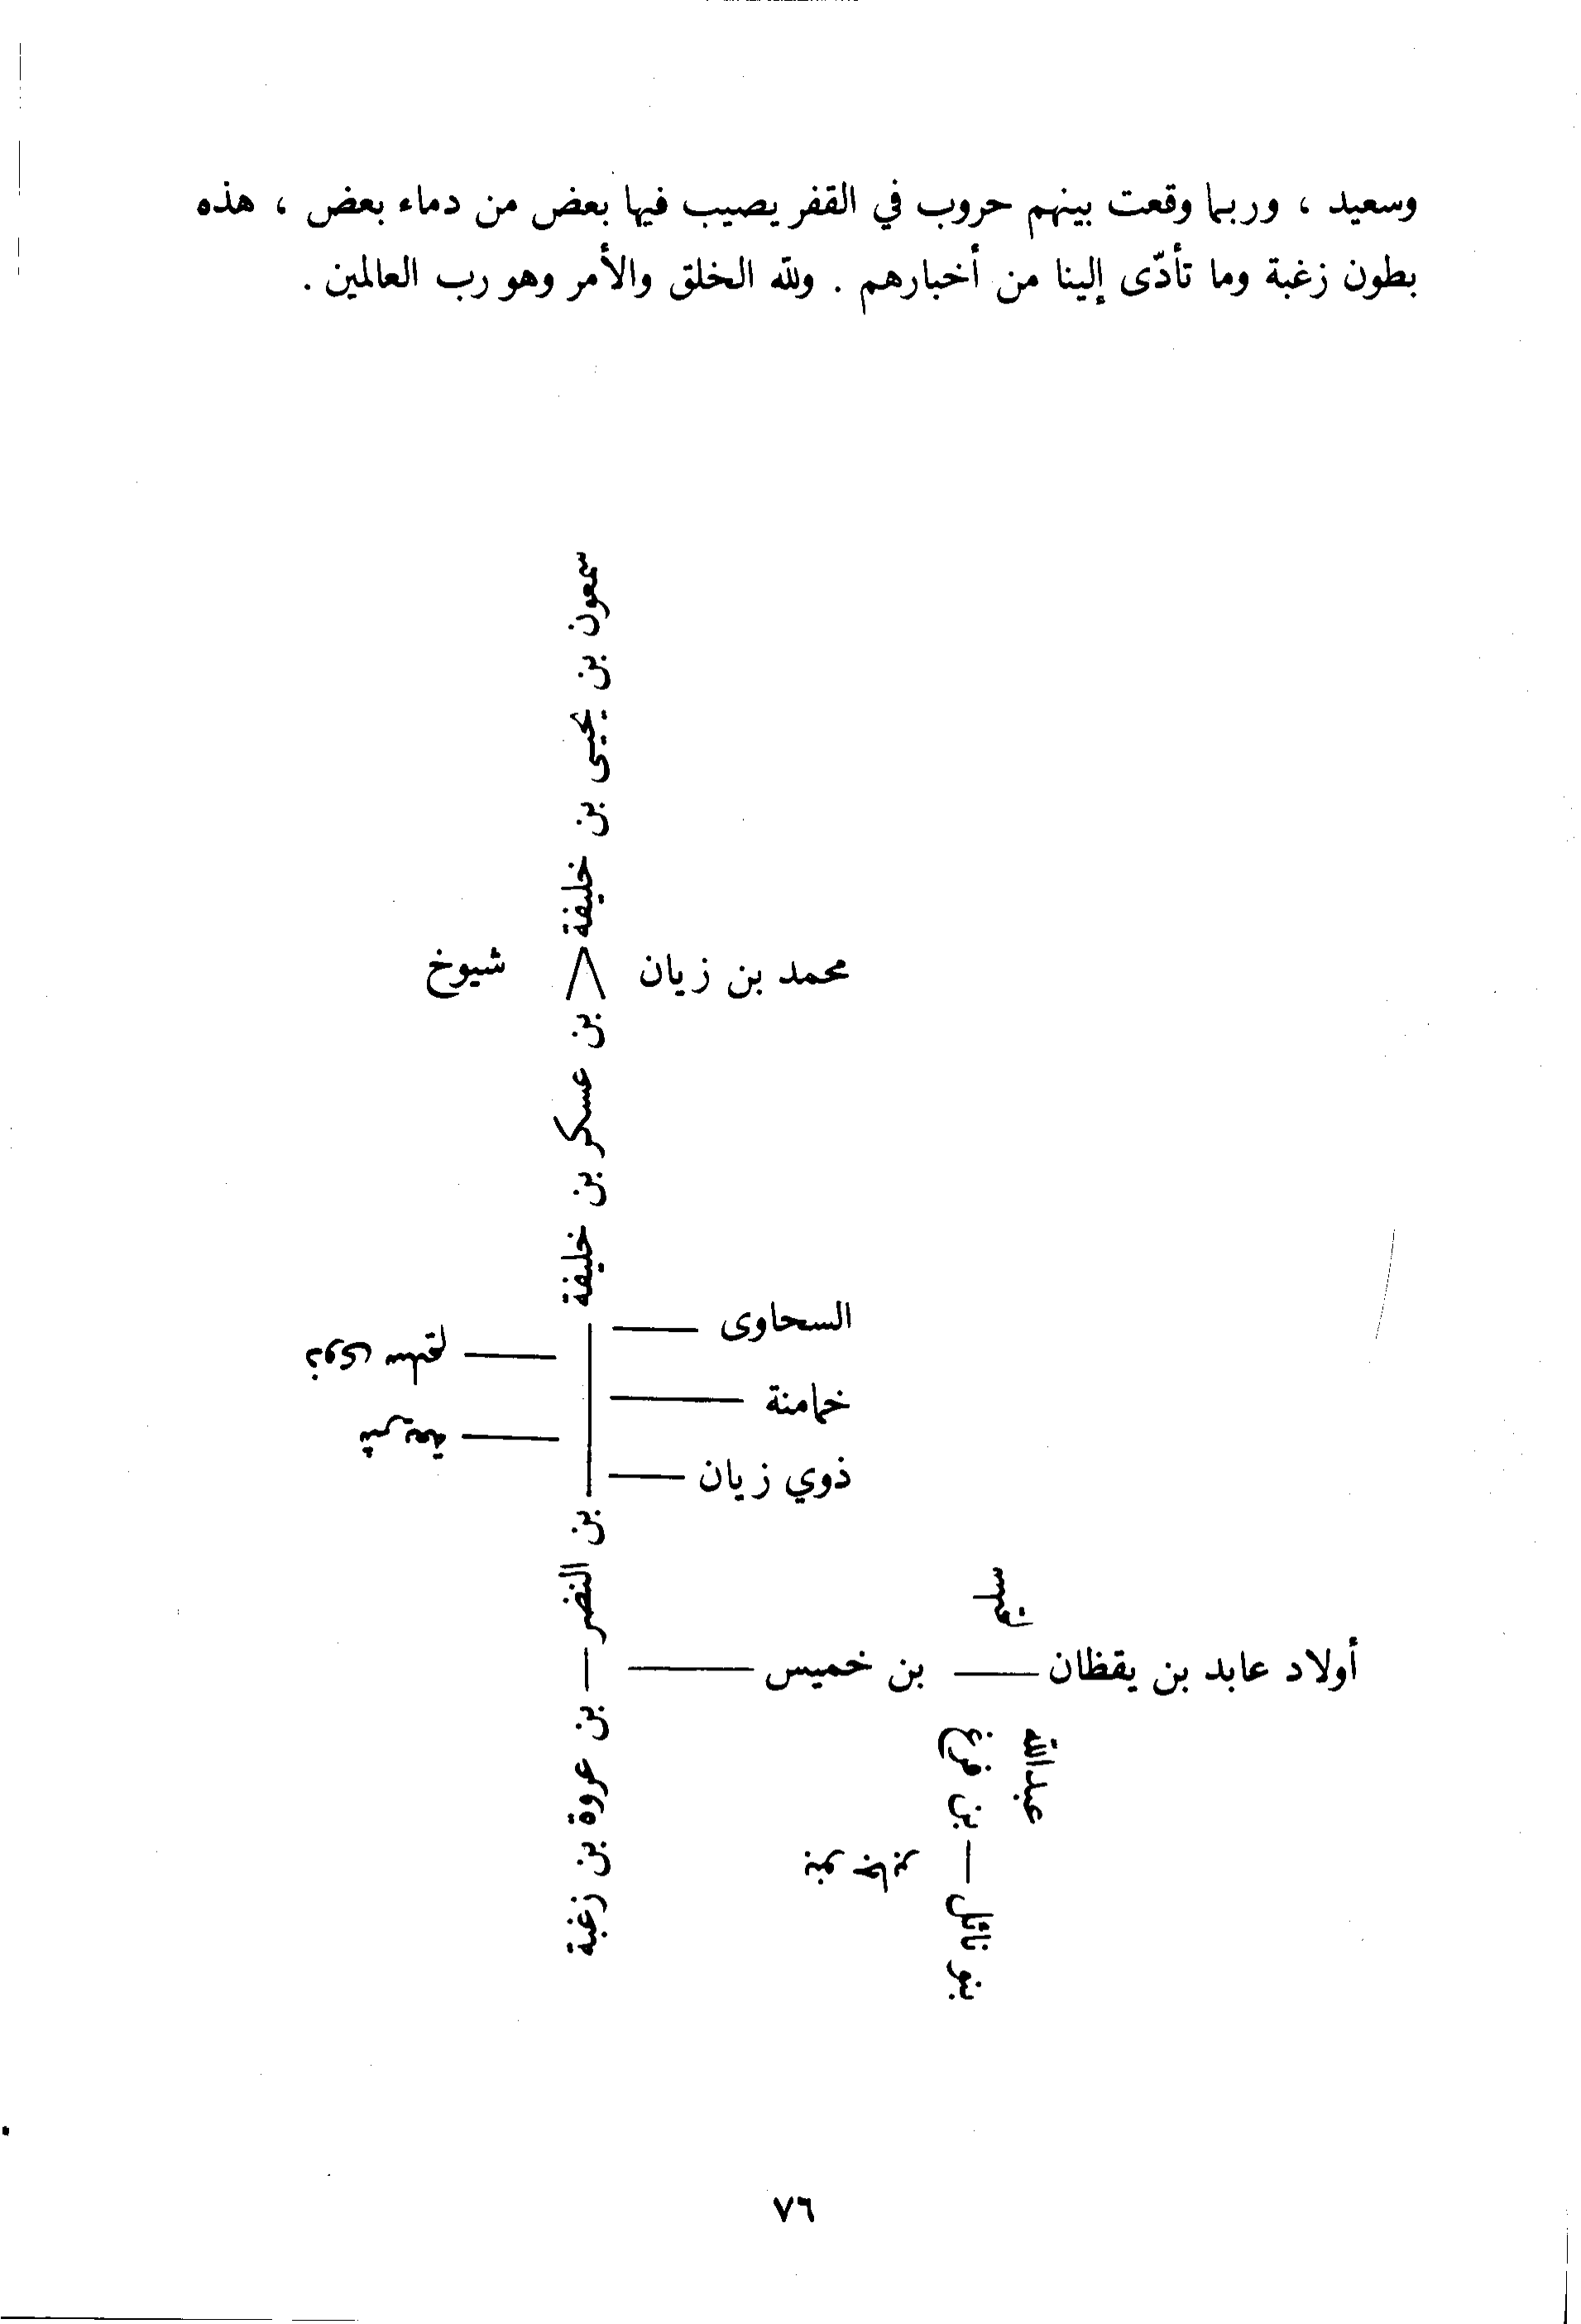 وسعيد ، وربما وقعت بينهم حروب في القفر يصيب فيها بعض من دماء بعض ، هذه
بطون زغبة وما تأدّى إلينا من أخبارهم . ولله الخلق والأمر وهو رب العالمين .
سمعون بن يحيى بن خليفة
محمد بن زيان
شيوخ
بن عسكر بن خليفة
السحاوى
خمامنة
شريعة
ذوي زيان
بن النضر
أولاد عابد بن يقظان
بن خميس
عبدالله
بن عروة بن زغبة
بن فرغ
بنو نائل
٧٦